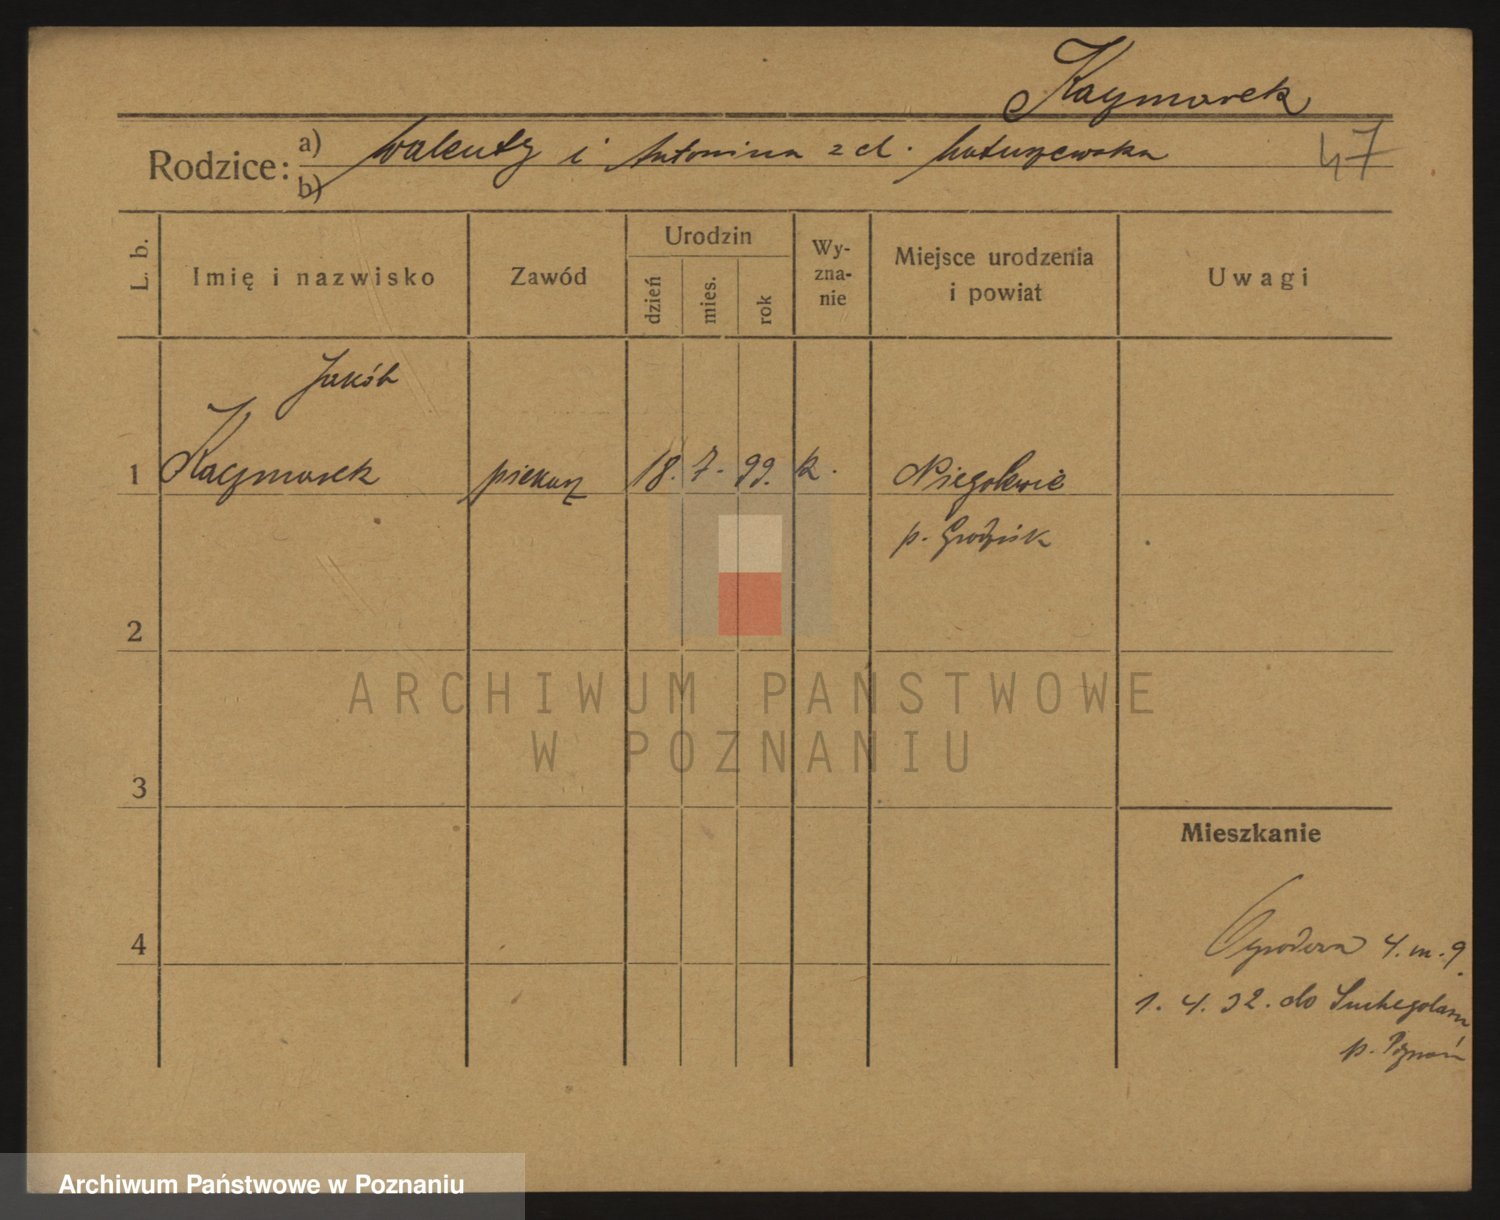 Kaczmarek
Rodzice: a) Walenty i Antonina z d. Matuszewska
b)
47
L. b.
Imię i nazwisko
Zawód
Urodzin
dzień
mies.
rok
Wy-
zna-
nie
Miejsce urodzenia
i powiat
Uwagi
Jakób
1 Kaczmarek piekarz 18. 7. 99. k. Niegolewie
p. Grodzisk
2
3
4
Mieszkanie
Ogrodowa 4. m. 9.
1. 4. 32. do Suchegolasu
p. Poznań
ARCHIWUM PAŃSTWOWE
W POZNANIU
Archiwum Państwowe w Poznaniu